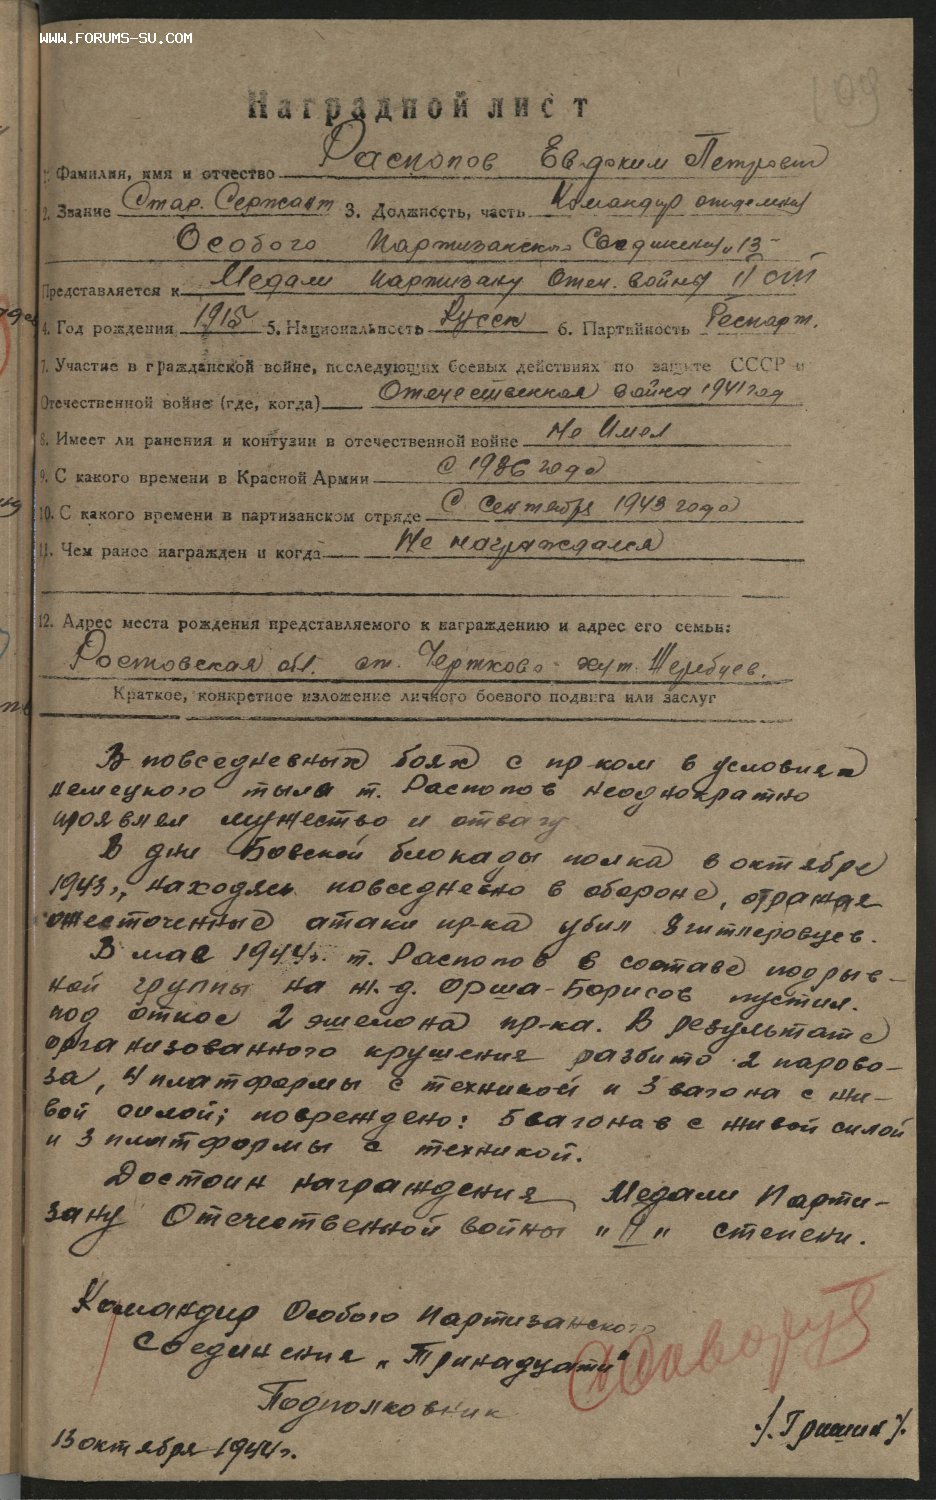 WWW.FORUMS-SU.COM
199
Наградной лист
1. Фамилия, имя и отчество Распопов Евдоким Петрович
2. Звание Стар. Сержант 3. Должность, часть Командир отделения
Особого Партизанского Соединения "13"
Представляется к Медали партизану Отеч. войны II ст
4. Год рождения 1915 5. Национальность Русск 6. Партийность Беспарт.
7. Участие в гражданской войне, последующих боевых действиях по защите СССР и
Отечественной войне (где, когда) Отечественная война 1941 год
8. Имеет ли ранения и контузии в отечественной войне Не Имел
9. С какого времени в Красной Армии С 1936 года
10. С какого времени в партизанском отряде С Сентября 1943 года
11. Чем ранее награжден и когда Не награждался
12. Адрес места рождения представляемого к награждению и адрес его семьи:
Ростовская обл. ст. Чертково хут. Жеребцев.
Краткое, конкретное изложение личного боевого подвига или заслуг
В повседневных боях с пр-ком в условиях
немецкого тыла т. Распопов неоднократно
проявлял мужество и отвагу
В дни Бовской блокады полка в октябре
1943г., находясь повседневно в обороне, отражая
ожесточенные атаки пр-ка убил 8 гитлеровцев.
В мае 1944г. т. Распопов в составе подрыв-
ной группы на ж.-д. Орша-Борисов пустил
под откос 2 эшелона пр-ка. В результате
организованного крушения разбито 2 парово-
за, 4 платформы с техникой и 3 вагона с жи-
вой силой; повреждено: 5 вагонов с живой силой
и 3 платформы с техникой.
Достоин награждения Медали Парти-
зану Отечественной войны "II" степени.
Командир Особого Партизанского
Соединения "Тринадцать"
Подполковник
/Гришин/.
13 октября 1944г.